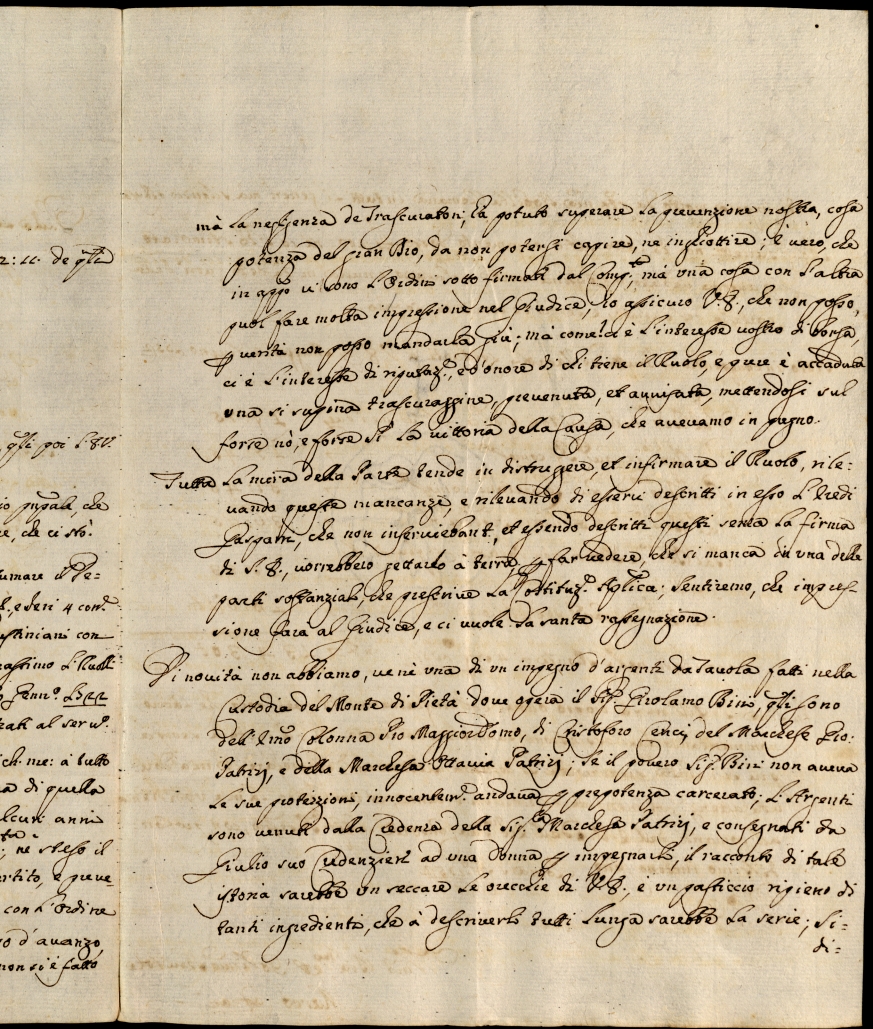 2: 11. de qsti
qsti poi L'Ill.
io pnpale, che
re, che ci stò.
umare il Re=
e deri 4 con.
stiniani con
assimo L'Ruoli
Genn.º 1722
trati al serv.º
ich me: a tutto
na di quella
alcuni anni
ne steso il
artito, e preve-
con L'ordine
ro d'avanzo,
non si è fatto
mà La negligenza de Trascuratori, hà potuto superare La prevenzione nostra, cosa
potenza del Gran Dio, da non potersi capire, ne inghiottire; è vero, che
in appo vi sono L'Ordini sotto firmati dal Comp.to, mà una cosa con L'altra
puol fare molta impressione nel Giudice, Io assicuro V.S., che non posso,
p verità non posso mandarla giù; mà come! ci è L'interesse vostro di borsa,
ci è L'interesse di riputaz.e, e d'onore di chi tiene il Ruolo, e pure è accaduta
una si supina trascuraggine, prevenuta, et avvisata, mettendosi sul
forse nò, e forse Sì La vittoria della Causa, che avevamo in pugno.
Tutta La mira della Parte tende in distrugere, et infirmare il Ruolo, rile=
vando queste mancanze, e rilevando di esservi descritti in esso L'Eredi
Gaspari, che non inserviebant, et essendo descritti questi senza La firma
di S.S., vorrebbero gettarlo à terra, p far vedere, che si manca in una delle
parti sostanziali, che prescrive La Costituz.e Aplica; Sentiremo, che impres-
sione farà al Giudice, e ci vuole La santa rassegnazione.
Di novità non abbiamo, ve nè una di un impegno d'argenti da Tavola fatti nella
Custodia del Monte di Pietà dove opera il Sig.r Girolamo Bini, qsti sono
dell'Emo Colonna Pio Maggiordomo, di Cristoforo Cenci, del Marchese Gio:
Patrizj, e della Marchesa Ottavia Patrizj; Se il povero Sig.r Bini non aveva
Le sue protezzioni, innocentem.te andava p prepotenza carcerato; L'Argenti
sono venuti dalla Credenza della Sig.ra Marchesa Patrizj, e consegnati da
Giulio suo Credenziere ad una donna p impegnarli, il racconto di tale
istoria sarebbe un seccare Le orecchie di V.S., è un pasticcio ripieno di
tanti ingredienti, che à descriverli tutti Lunga sarebbe La serie; Si=
di=